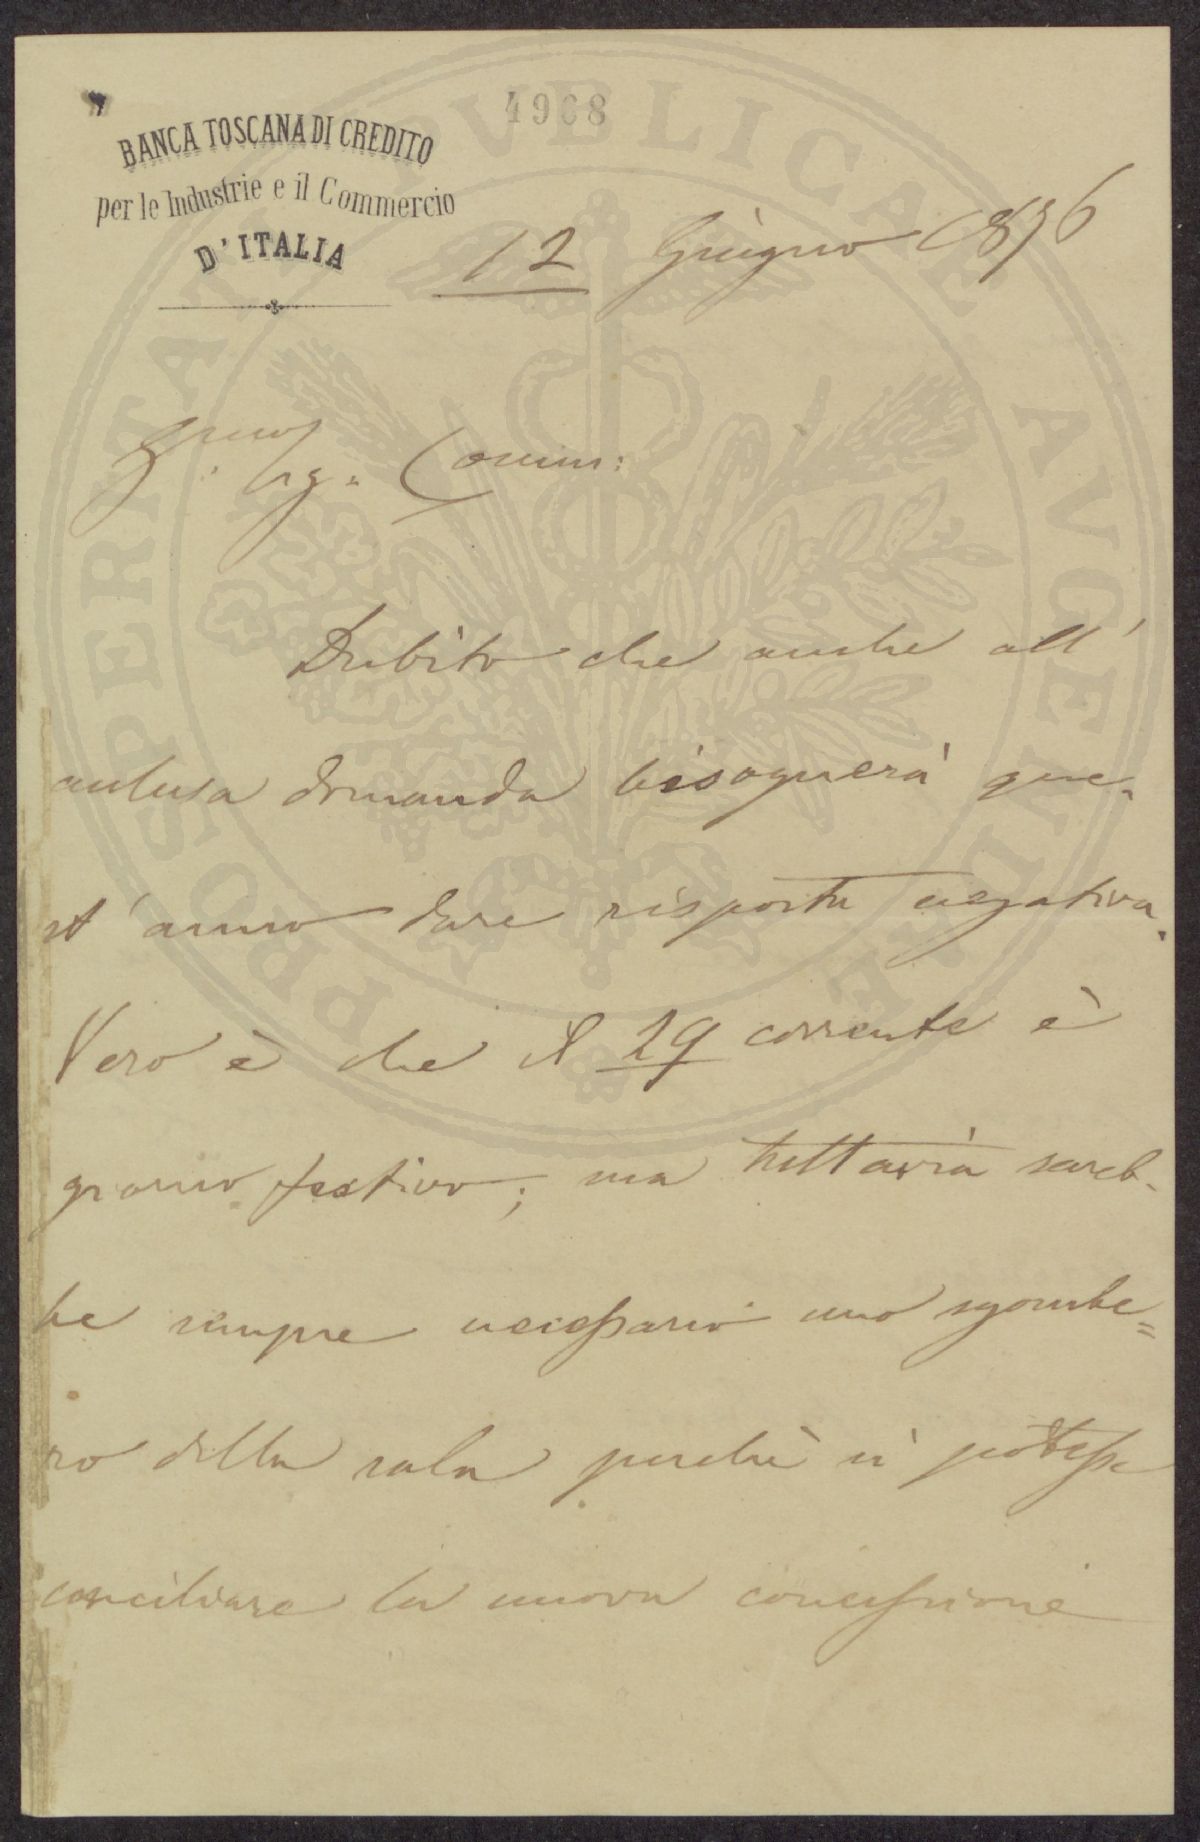 4968
BANCA TOSCANA DI CREDITO
per le Industrie e il Commercio
D'ITALIA
PROSPERITATI PVBLICAE AVGENDAE
12 Giugno 1876
Sig. Comm:
Dubito che anche all'
anlusa domanda bisognerà que-
st'anno dare risposta negativa.
Vero è che il 29 corrente è
giorno festivo; ma tuttavia sareb-
be sempre necessario uno sgombe=
ro della sala perchè si potesse
conciliare la nuova concessione